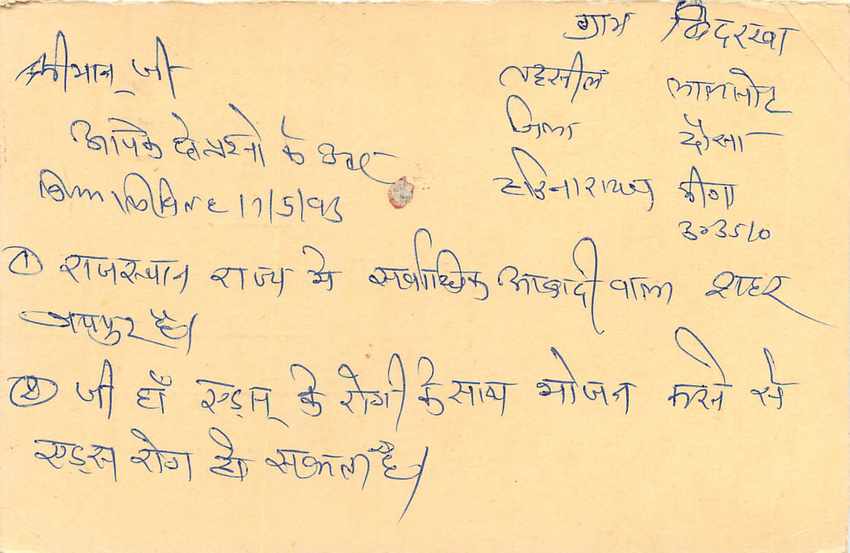 ग्राम किदरखा
श्रीमान् जी
तहसील लालसोट
जिला दौसा
आपके दो प्रश्नो के उत्तर
हरिनारायण मीणा
17/5/93
303510
① राजस्थान राज्य मे सर्वाधिक आबादी वाला शहर
जयपुर है।
② जी हाँ एड्स् के रोगी के साथ भोजन करने से
एड्स रोग हो सकता है।